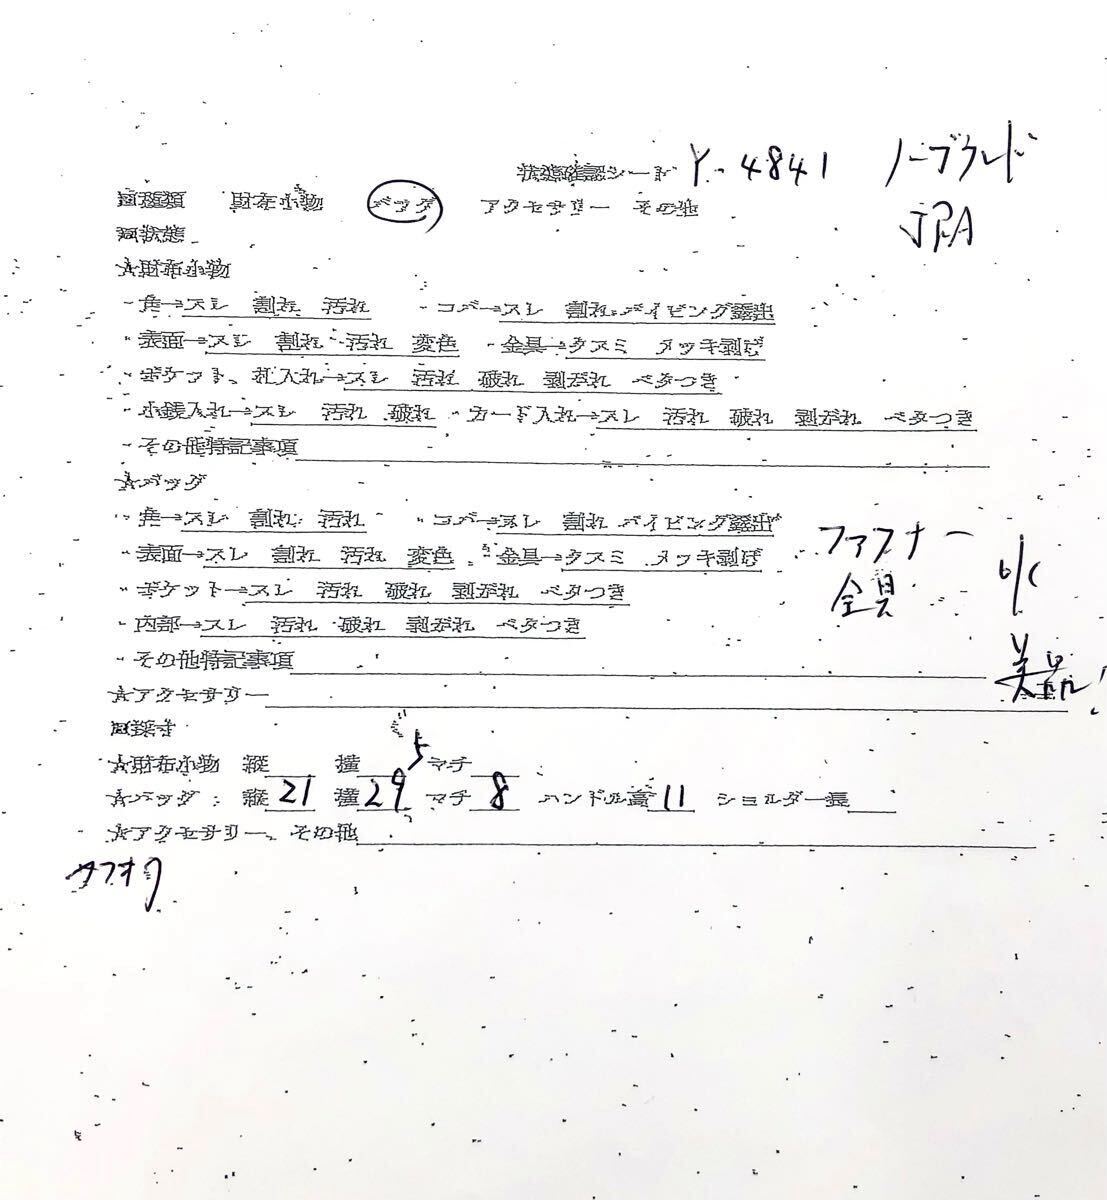 状態確認シート Y-4841 ノーブランド
JRA
□種類 財布小物 バッグ アクセサリー その他
□状態
☆財布小物
・角→スレ 割れ 汚れ ・コバ→スレ 割れ パイピング露出
・表面→スレ 割れ 汚れ 変色 ・金具→クスミ メッキ剥げ
・ポケット、札入れ→スレ 汚れ 破れ 剥がれ ベタつき
・小銭入れ→スレ 汚れ 破れ ・カード入れ→スレ 汚れ 破れ 剥がれ ベタつき
・その他特記事項
☆バッグ
・角→スレ 割れ 汚れ ・コバ→スレ 割れ パイピング露出
・表面→スレ 割れ 汚れ 変色 ・金具→クスミ メッキ剥げ
ファスナー
金具
・ポケット→スレ 汚れ 破れ 剥がれ ベタつき
・内部→スレ 汚れ 破れ 剥がれ ベタつき
・その他特記事項
美品
☆アクセサリー
□採寸
☆財布小物 縦 横 マチ
5
☆バッグ : 縦 21 横 29 マチ 8 ハンドル高 11 ショルダー長
☆アクセサリー、その他
ヤフオク